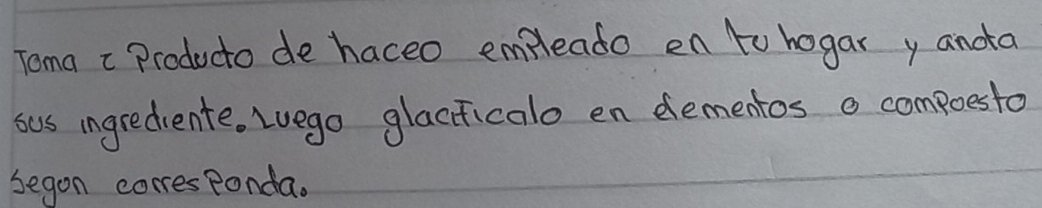 Toma 2 Producto de haceo empleado en tu hogar y anota
sus ingrediente. Luego glacificalo en elementos o compoesto
segon corresponda.